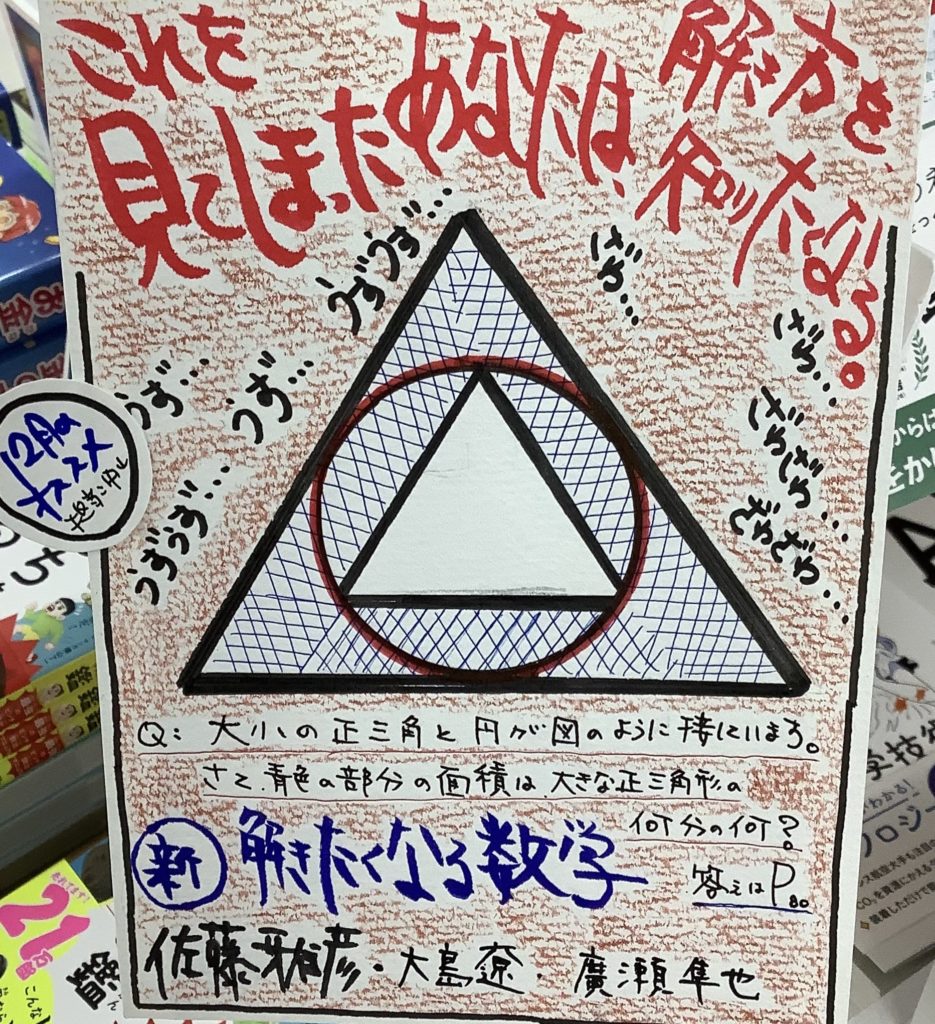 これを
見てしまったあなたは、
解き方を、
知りたくなる。
うずうず…
うず…
うず…
うずうず…
ざわ…
ざわ…
ざわざわ…
ざわざわ…
12月の
オススメ
Q: 大小の正三角と円が図のように接しています。
さて、青色の部分の面積は、大きな正三角形の
何分の何?
新 解きたくなる数学
答えはP80
佐藤雅彦・大島遼・廣瀬隼也
お金
21
万部
こんな
からは
をかし
わかる!